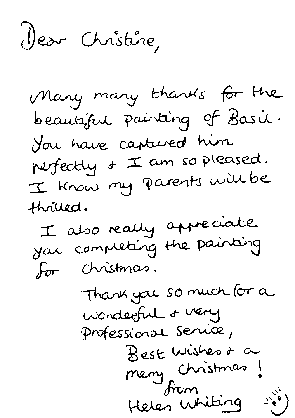 Dear Christine,
Many many thanks for the
beautiful painting of Basil.
You have captured him
perfectly & I am so pleased.
I know my parents will be
thrilled.
I also really appreciate
you completing the painting
for Christmas.
Thank you so much for a
wonderful & very
Professional Service,
Best Wishes & a
merry Christmas!
from
Helen Whiting